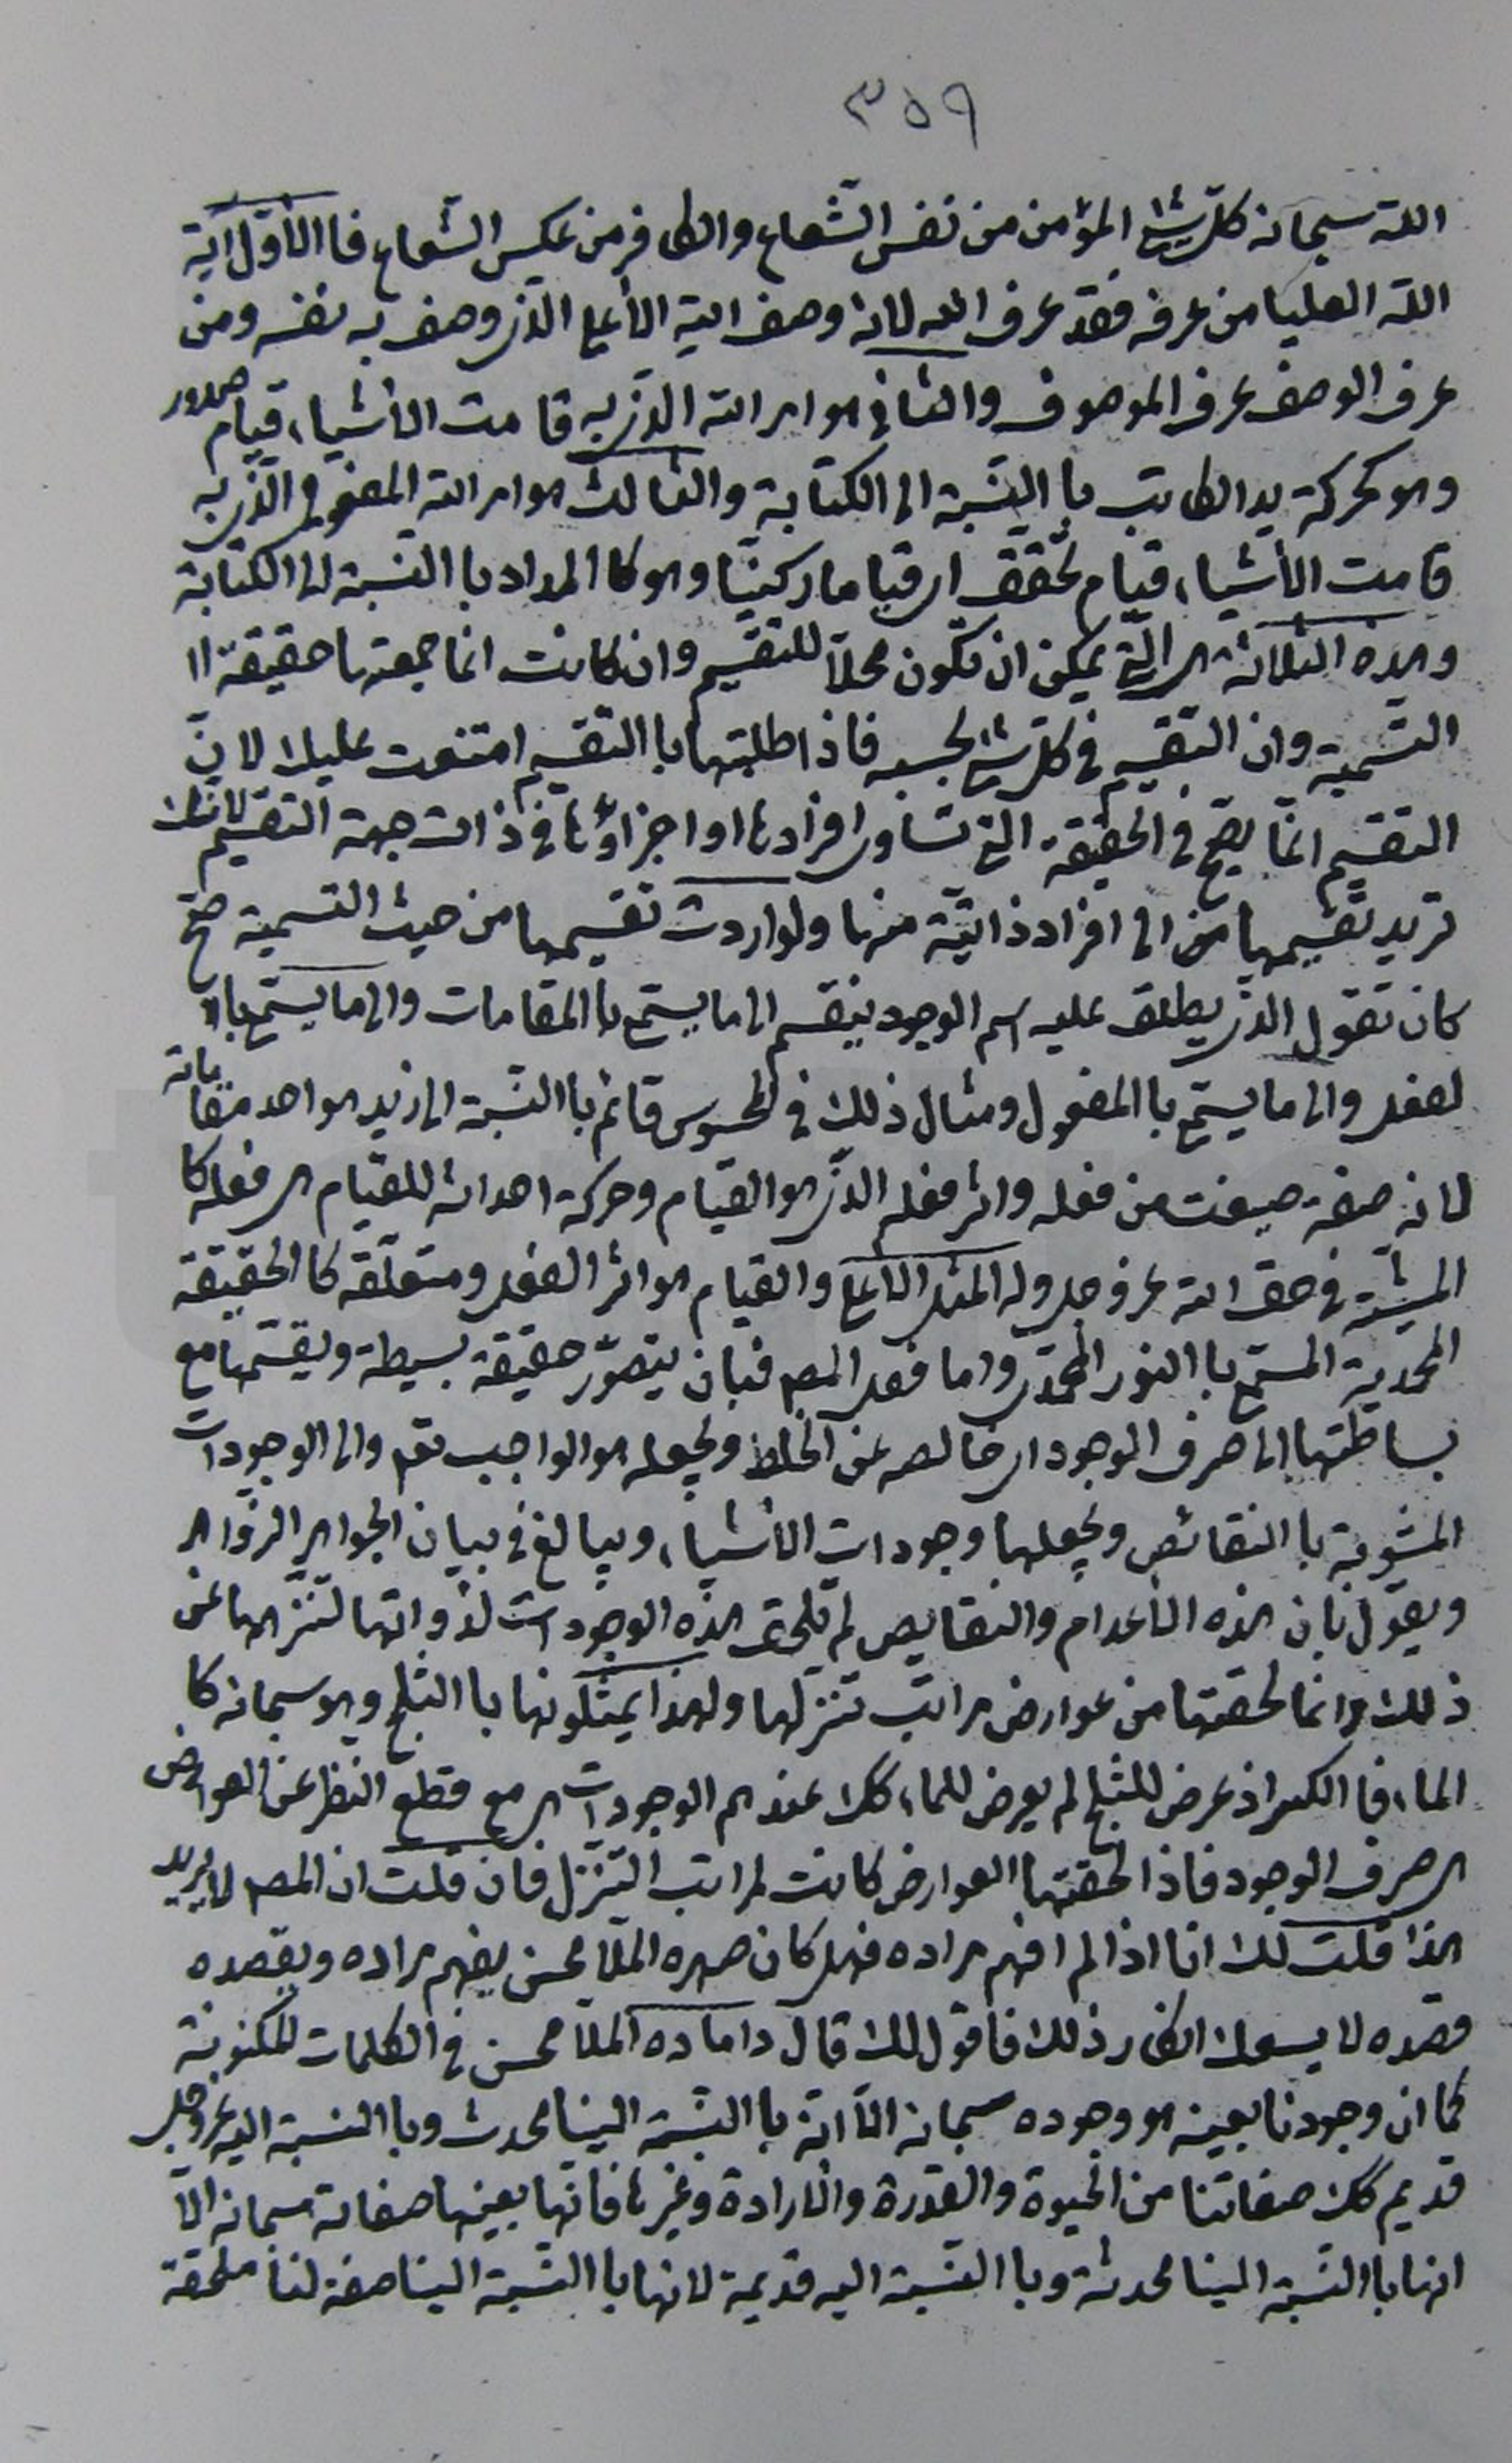 ٣٥٩
الله سبحانه كل شئ المؤمن من نفس الشعاع والكافر من عكس الشعاع فاالأول آية
الله العليا من عرفه فقد عرف الله لانه وصف الله الأعلى الذي وصف به نفسه ومن
عرف الوصف عرف الموصوف والثاني هو امر الله الذي به قامت الأشياء قيام صدور
وهو كحركة يد الكاتب باالنسبة الى الكتابة والثالث هو امر الله المفعولى الذي به
قامت الأشياء قيام تحقق اى قياما ركنيا وهو كاالمداد باالنسبة الى الكتابة
وهذه الثلاثة هي التي يمكن ان تكون محلا للتقسيم وان كانت انما جمعتها حقيقة اا
التسمية وان التقسيم في كل شئ بحسبه فاذا طلبتها باالتقسيم امتنعت عليك لان
التقسيم انما يصح في الحقيقة التي تساوى افرادها او اجزاؤها في ذات جهة التقسيم لانك
تريد تقسيمها من الى افراد ذاتية منها ولو اردت تقسيمها من حيث التسمية صح
كان تقول الذي يطلق عليه اسم الوجود ينقسم الى ما يسمى باالمقامات والى ما يسمى باا
لفعل والى ما يسمى باالمفعول ومثال ذلك في المحسوس قائم باالنسبة الى زيد هو احد مقاماته
لانه صفة صيغت من فعله واثر فعله الذي هو القيام وحركة احداثه للقيام هي فعله كا
المشية في حق الله عز وجل وله المثل الأعلى والقيام هو اثر الفعل ومتعلقه كاالحقيقة
المحمدية المسمى باالنور المحمدي واما فعل المصـ فبان يتصور حقيقة بسيطة ويقسمها مع
بساطتها الى صرف الوجود اى خالصه عن الخلط ويجعله هو الواجب تعـ والى الوجودات
المشوبة باالنقائص ويجعلها وجودات الأشياء ويبالغ في بيان الجواهر الزواهر
ويقول بان هذه الأعدام والنقايص لم تلحق هذه الوجودات لذواتها لتنزهها عن
ذلك وانما لحقتها من عوارض مراتب تنزلها ولهذا يمثلونها باالثلج وهو سبحانه كا
الماء فاالكسر اذ عرض للثلج لم يعرض للماء كك عندهم الوجودات هي مع قطع النظر عن العوارض
هي صرف الوجود فاذا لحقتها العوارض كانت لمراتب التنزل فان قلت ان المصـ لا يريد
هذا قلت لك انا اذا لم افهم مراده فهل كان صهره الملا محسن يفهم مراده ويقصده
قصده لا يسعك انكار ذلك فاقول لك قال داماده الملا محسن في الكلمات المكنونة
كما ان وجودنا بعينه هو وجوده سبحانه الا انه باالنسبة الينا محدث وباالنسبة اليه عز وجل
قديم كك صفاتنا من الحيوة والقدرة والارادة وغيرها فانها بعينها صفاته سبحانه الا
انها باالنسبة الينا محدثة وباالنسبة اليه قديمة لانها باالنسبة الينا صفة لنا ملحقة